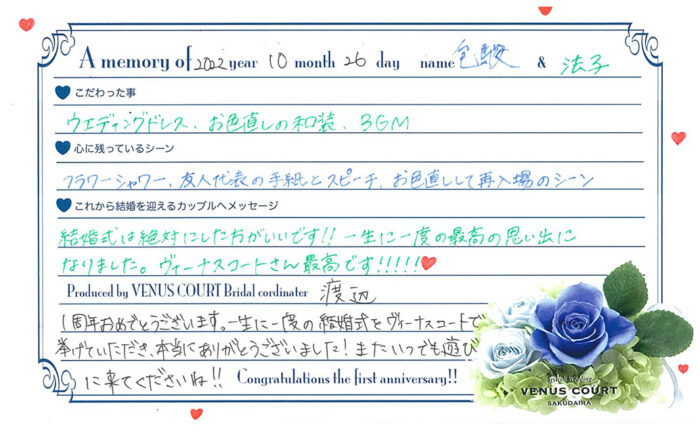 A memory of 2022 year 10 month 26 day name 包駿 & 法子
こだわった事
ウエディングドレス、お色直しの和装、BGM
心に残っているシーン
フラワーシャワー、友人代表の手紙とスピーチ、お色直しして再入場のシーン
これから結婚を迎えるカップルへメッセージ
結婚式は絶対にした方がいいです!! 一生に一度の最高の思い出に
なりました。ヴィーナスコートさん最高です!!!!!
Produced by VENUS COURT Bridal cordinater 渡辺
1周年おめでとうございます。一生に一度の結婚式をヴィーナスコートで
挙げていただき、本当にありがとうございました！またいつでも遊び
に来てくださいね!! Congratulations the first anniversary!!
VENUS COURT
SAKUDAIRA